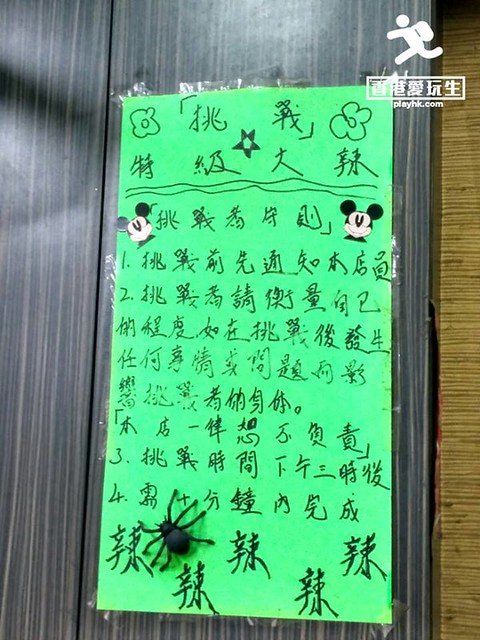 香港愛玩生
playhk.com
「挑戰」
特級大辣
「挑戰者守則」
1. 挑戰前先通知本店員
2. 挑戰者請衡量自己
的程度如在挑戰後發生
任何事情或問題而影
響挑戰者的身体。
「本店一律恕不負責」
3. 挑戰時間下午三時後
4. 需十分鐘內完成
辣 辣 辣 辣 辣